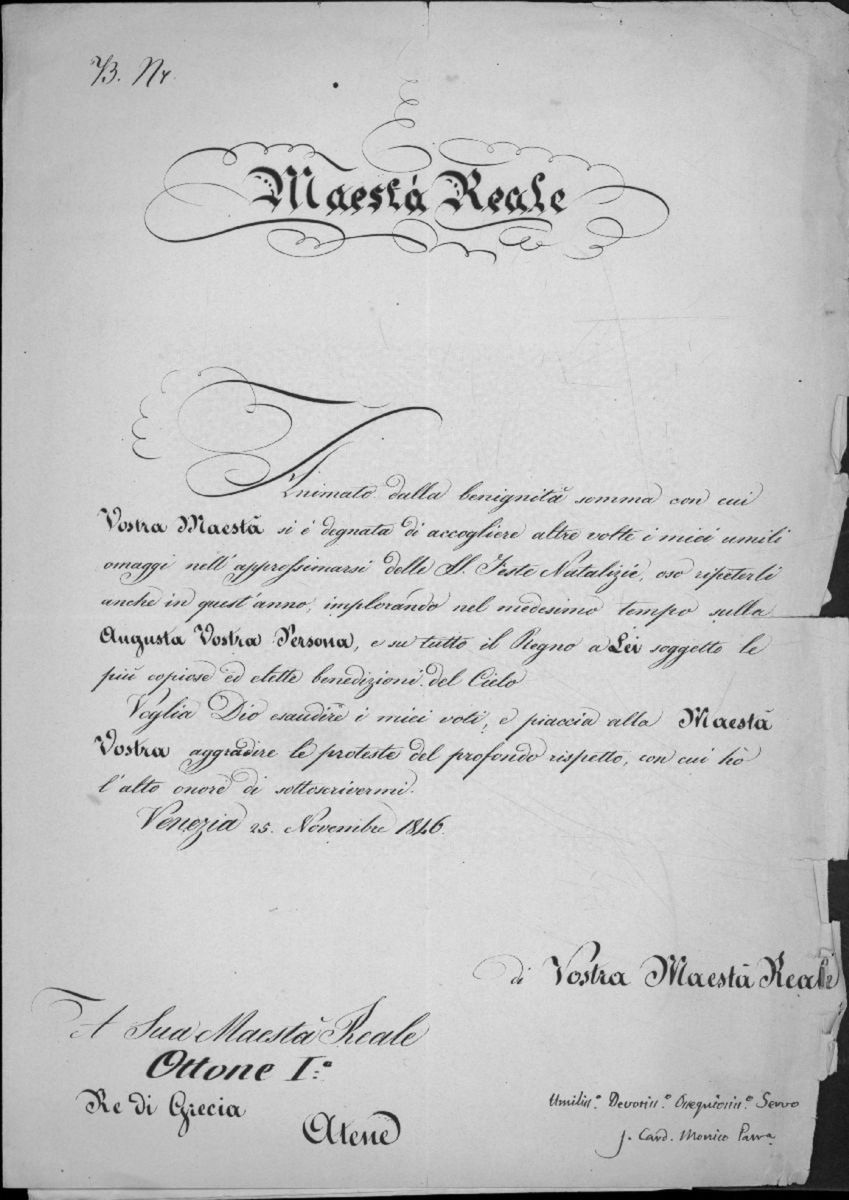 Maestà Reale
Animato dalla benignità somma con cui
Vostra Maestà si è degnata di accogliere altre volte i miei umili
omaggi nell'appressimarsi delle SS. Feste Natalizie, oso ripeterli
anche in quest'anno, implorando nel medesimo tempo sulla
Augusta Vostra Persona, e su tutto il Regno a Lei soggetto le
più copiose ed elette benedizioni del Cielo
Voglia Dio esaudire i miei voti, e piaccia alla Maestà
Vostra aggradire le proteste del profondo rispetto, con cui hò
l'alto onore di sottoscrivermi.
Venezia 25. Novembre 1846.
di Vostra Maestà Reale
A Sua Maestà Reale
Ottone I.º
Re di Grecia
Atene
Umiliss.º Devotiss.º Ossequiosiss.º Servo
J. Card. Monico